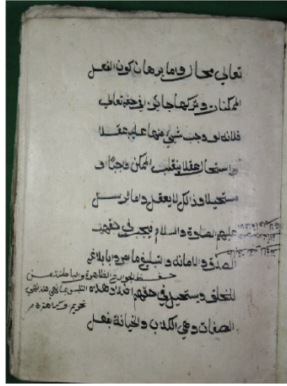 تعالى مجاز وما برهان كون الفعل
الممكنات وتركها جائز في حقه تعالى
فلانه لو وجب شيئ منها عليه عقلا
او استحال عقلا لانقلب الممكن واجبا و
مستحيلا وذالك لا يعقل واما الرسل
عليهم الصلاة والسلام فيجب في حقهم
الصدق والامانة وتبليغ ما امروا بابلاغ
حفظ الجوارح الظاهرة والباطنة من
للخلق ويستحيل في حقهم اضداد هذه
الصفات وهي الكذب والخيانة بفعل